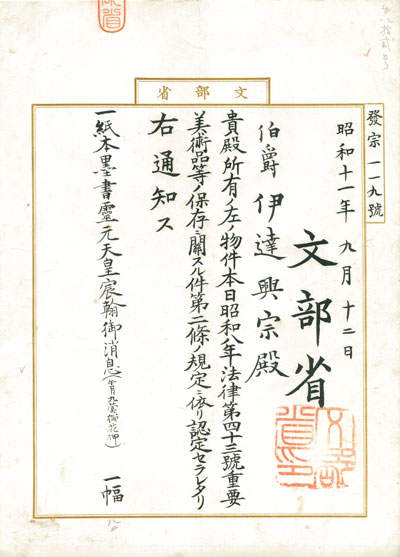 文部省
發宗一一九號
昭和十一年九月十二日
文部省
伯爵伊達興宗殿
貴殿所有ノ左ノ物件本日昭和八年法律第四十三號重要
美術品等ノ保存ニ關スル件第二條ノ規定ニ依リ認定セラレタリ
右通知ス
一紙本墨書靈元天皇宸翰御消息 一幅
文部省印